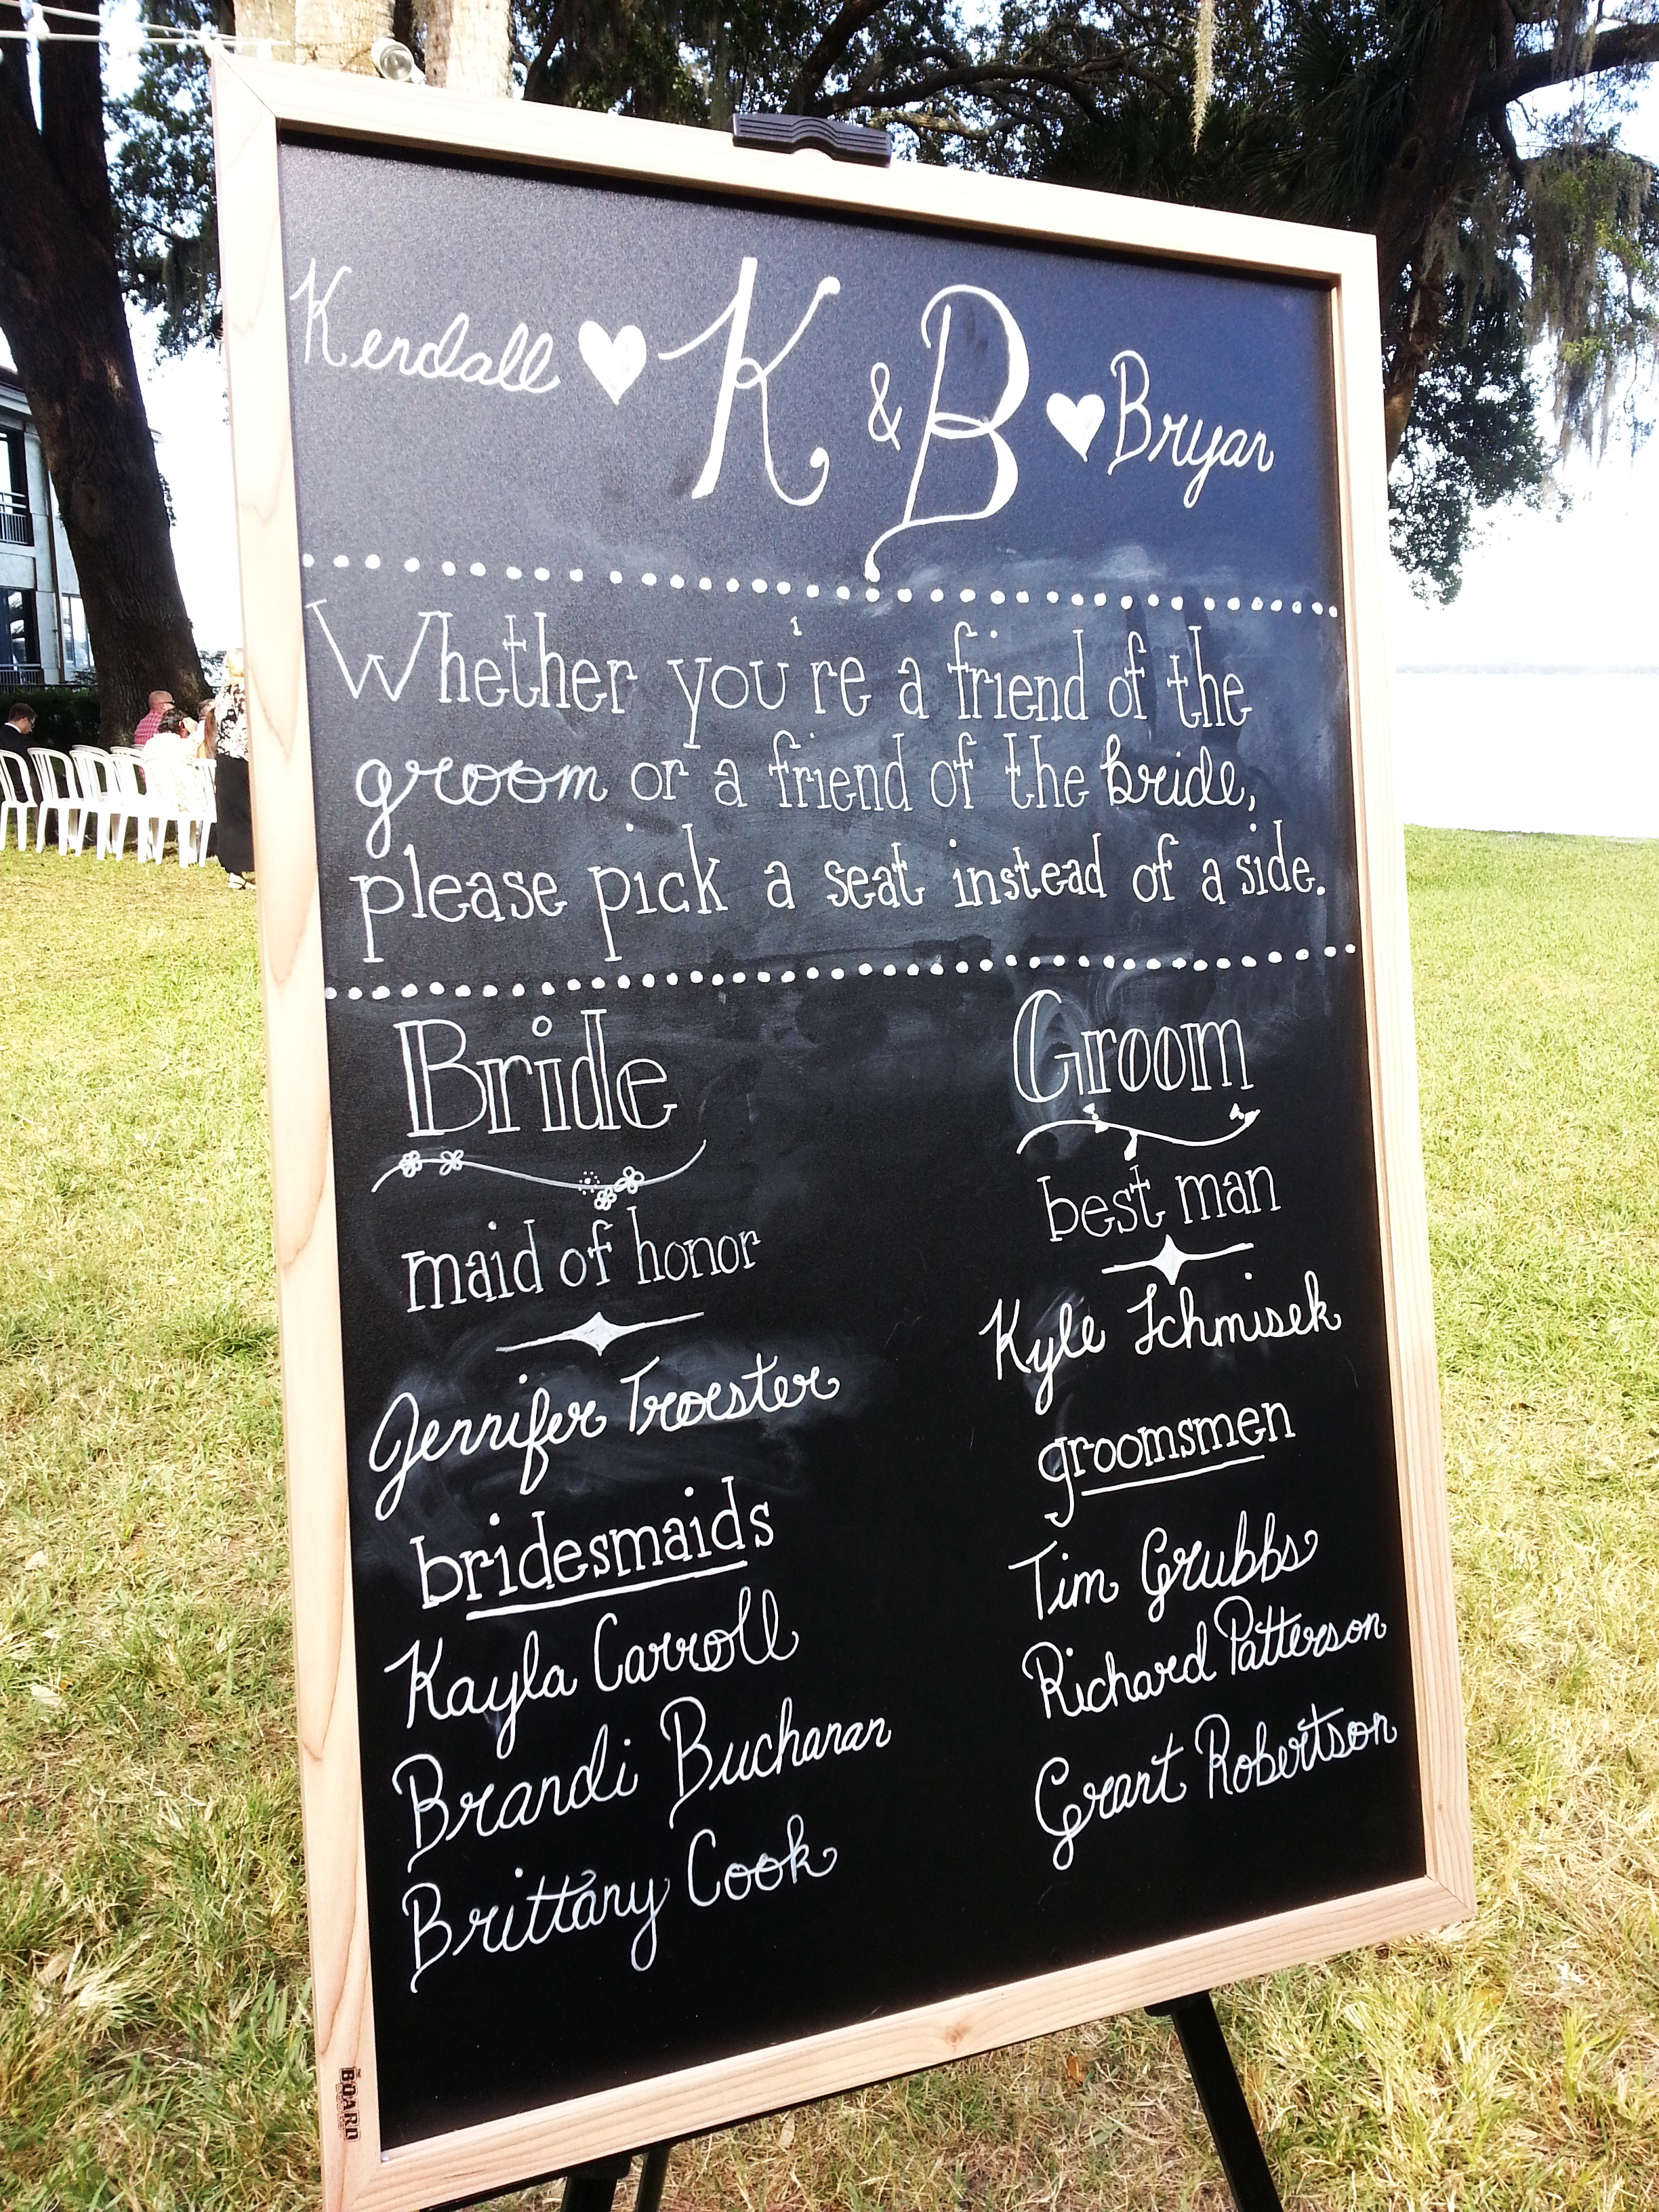 Kendall ♥ K & B ♥ Bryan
Whether you're a friend of the
groom or a friend of the bride,
please pick a seat instead of a side.
Bride
maid of honor
Jennifer Troester
bridesmaids
Kayla Carroll
Brandi Buchanan
Brittany Cook
Groom
best man
Kyle Schmisek
groomsmen
Tim Grubbs
Richard Patterson
Grant Robertson
BOARD